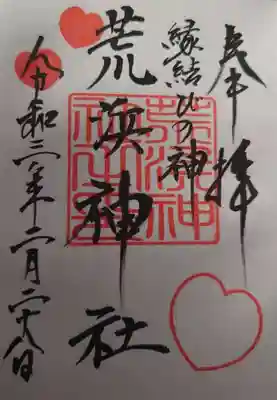 奉拝
縁結びの神
荒神社
令和三年二月二十八日